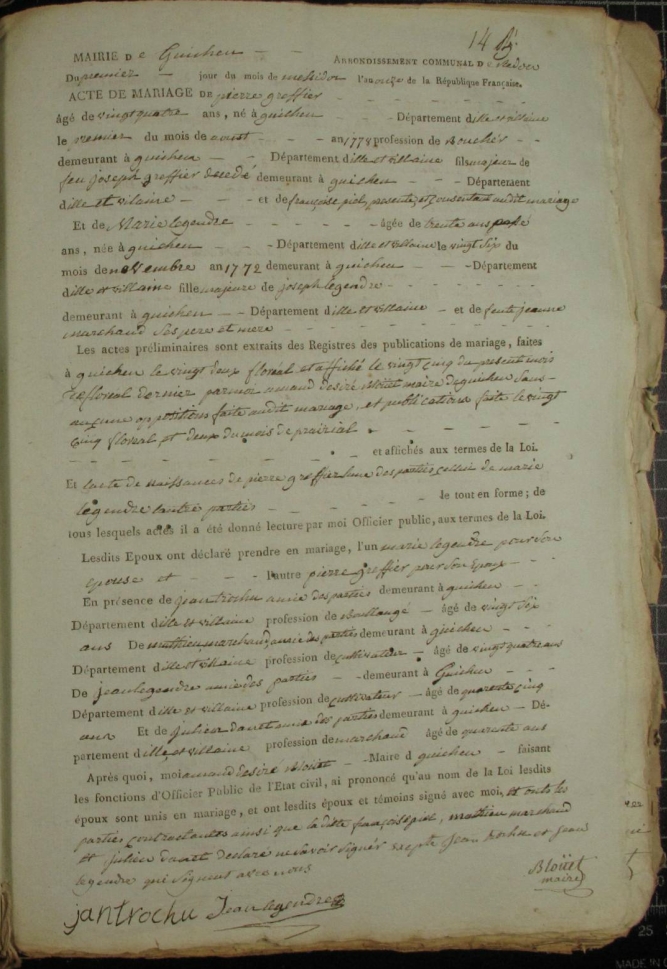 14
MAIRIE De Guichen Arrondissement communal De Redon
Du premier jour du mois de messidor l'an onze de la République Française.
ACTE DE MARIAGE DE pierre greffier
âgé de vingt quatre ans, né à guichen Département dille et vilaine
le premier du mois de aoust an 1778 profession de Boucher
demeurant à guichen Département dille et villaine fils majeur de
feu joseph greffier décédé demeurant à guichen Département
dille et vilaine et de françoise piel, presente et consente audit mariage
Et de Marie legendre âgée de trente ans passé
ans, née à guichen Département dille et villaine le vingt six du
mois de novembre an 1772 demeurant à guichen Département
dille et villaine fille majeure de joseph legendre
demeurant à guichen Département dille et villaine et de feute jeanne
marchand ses pere et mere
Les actes préliminaires sont extraits des Registres des publications de mariage, faites
à guichen le vingt deux floreal et affiché le vingt cinq du present mois
de floreal dernier par moi amand desiré Blouet maire de guichen sans
aucune oppositions faite audit mariage, et publications faite le vingt
cinq floreal et deux du mois de prairial
et affichés aux termes de la Loi.
Et lacte de naissances de pierre greffier lune des parties celui de marie
legendre lautre parties le tout en forme; de
tous lesquels actes il a été donné lecture par moi Officier public, aux termes de la Loi.
Lesdits Epoux ont déclaré prendre en mariage, l'un marie legendre pour son
epouse et l'autre pierre greffier pour son Epoux
En présence de jean trochu amie des parties demeurant à guichen
Département dille et villaine profession de Boullangé âgé de vingt six
ans De mathieu marchand amie des parties demeurant à guichen
Département dille et vilaine profession de cultivateur âgé de vingt quatre ans
De jean legendre amie des parties demeurant à Guichen
Département dille et villaine profession de cultivateur âgé de quarente cinq
ans Et de julien danet amie des parties demeurant à guichen Dé-
partement dille et villaine profession de marchand âgé de quarente ans
Après quoi, moi amand desiré Blouet Maire d guichen faisant
les fonctions d'Officier Public de l'Etat civil, ai prononcé qu'au nom de la Loi lesdits
époux sont unis en mariage, et ont lesdits époux et témoins signé avec moi, et ont les
parties contractantes ainsi que la ditte françoise piel, mathieu marchand
et julien danet declaré ne savoir signer excepté jean trochu et jean
legendre qui signent avec nous
Bloüet
maire
jan trochu Jean legendre
25
MADE IN